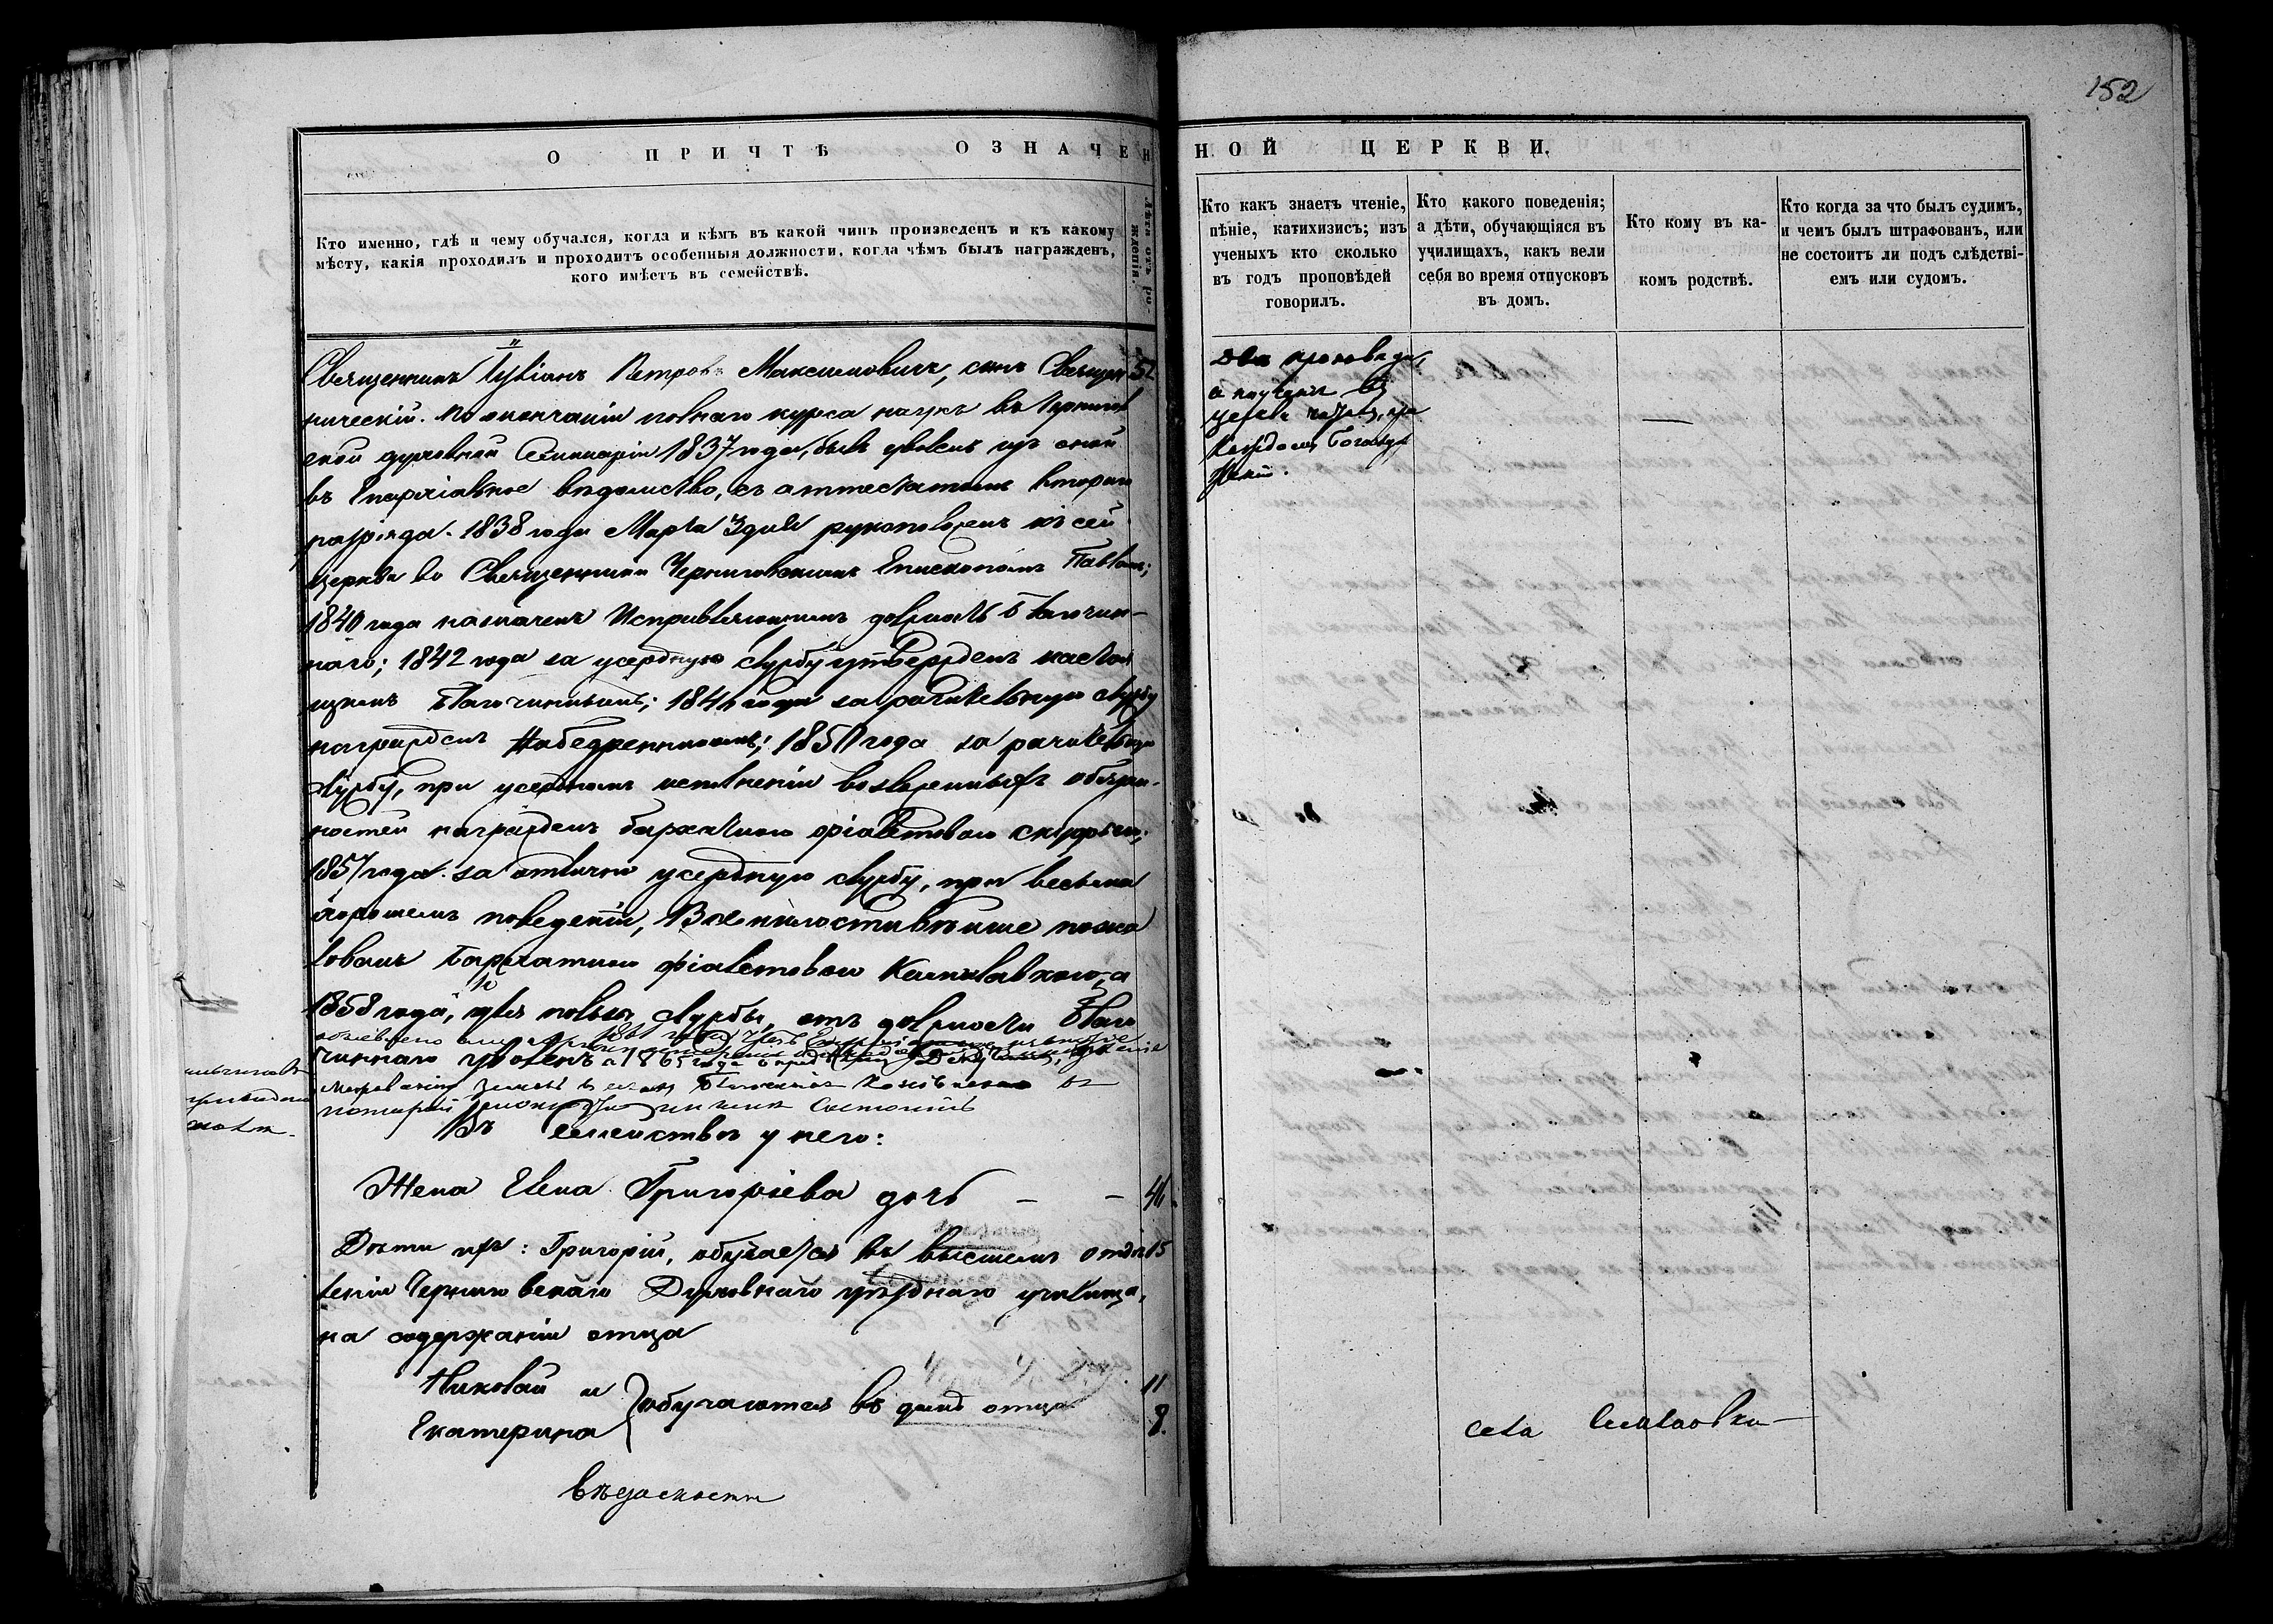 152
О ПРИЧТѢ ОЗНАЧЕН
НОЙ ЦЕРКВИ.
Кто именно, гдѣ и чему обучался, когда и кѣмъ въ какой чинъ произведенъ и къ какому
мѣсту, какія проходилъ и проходитъ особенныя должности, когда чѣмъ былъ награжденъ,
кого имѣетъ въ семействѣ.
Лѣта отъ ро-
жденія.
Кто какъ знаетъ чтеніе,
пѣніе, катихизисъ; изъ
ученыхъ кто сколько
въ годъ проповѣдей
говорилъ.
Кто какого поведенія;
а дѣти, обучающіяся въ
училищахъ, какъ вели
себя во время отпусковъ
въ домъ.
Кто кому въ ка-
комъ родствѣ.
Кто когда за что былъ судимъ,
и чемъ былъ штрафованъ, или
не состоитъ ли подъ слѣдстві-
емъ или судомъ.
Священникъ Іуліанъ Петровъ Максимовичъ, сынъ Священ 52
ническій. По окончаніи полнаго курса наукъ въ Чернигов
ской духовной Семинаріи 1837 года, былъ уволенъ изъ оной
въ Епархіальное вѣдомство, съ аттестатомъ втораго
разряда. 1838 года Марта 3 дня рукоположенъ къ сей
церкви во Священника Черниговскимъ Епископомъ Павломъ;
1840 года назначенъ Исправляющимъ должность Благочин-
наго; 1842 года за усердную службу утвержденъ настоя
щимъ Благочиннымъ; 1846 года за рачительную службу
награжденъ Набедренникомъ; 1850 года за рачительную
службу, при усердномъ исполненіи возложенныхъ обязан-
ностей награжденъ бархатною фіолетовою скуфьею;
1857 года за отлично усердную службу, при весьма
хорошемъ поведеніи, Всемилостивѣйше пожа
лованъ бархатною фіолетовою Камилавкою, а
1858 года, для пользы службы, отъ должности Благо
чиннаго уволенъ а 1865 года
Въ Семействѣ у него:
Жена Елена Григоріева дочь — — 46
Дѣти ихъ: Григорій, обучается въ высшемъ отдѣ 15
леніи Черниговскаго Духовнаго уѣзднаго училища,
на содержаніи отца
Николай и 11
Екатерина обучаются въ домѣ отца 8.
вѣдомости
Двѣ проповѣди,
а поученія въ
церкви читалъ при
каждомъ Богослу
женіи.
—
села